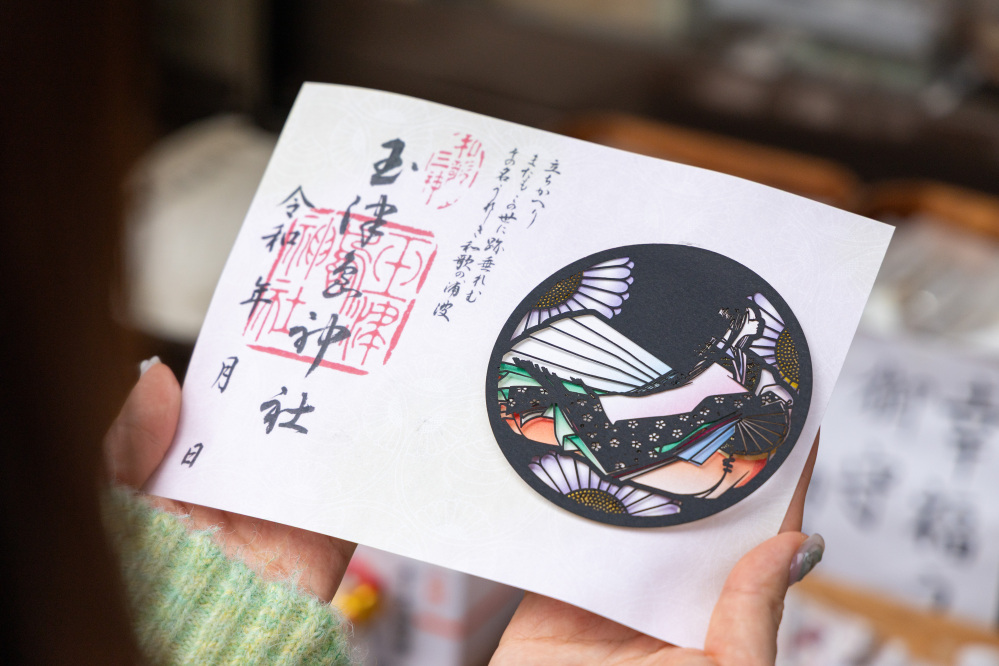 立ちかへり
またもこの世に跡垂れむ
その名うれしき和歌の浦波
和歌
三神
玉津島神社
玉津
島
神社
令和 年
月
日
幸福
御守